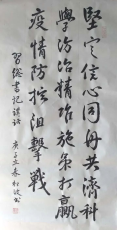 堅定信心同舟共濟科
學防治精準施策打贏
疫情防控阻擊戰
習總書記講話
庚子立春